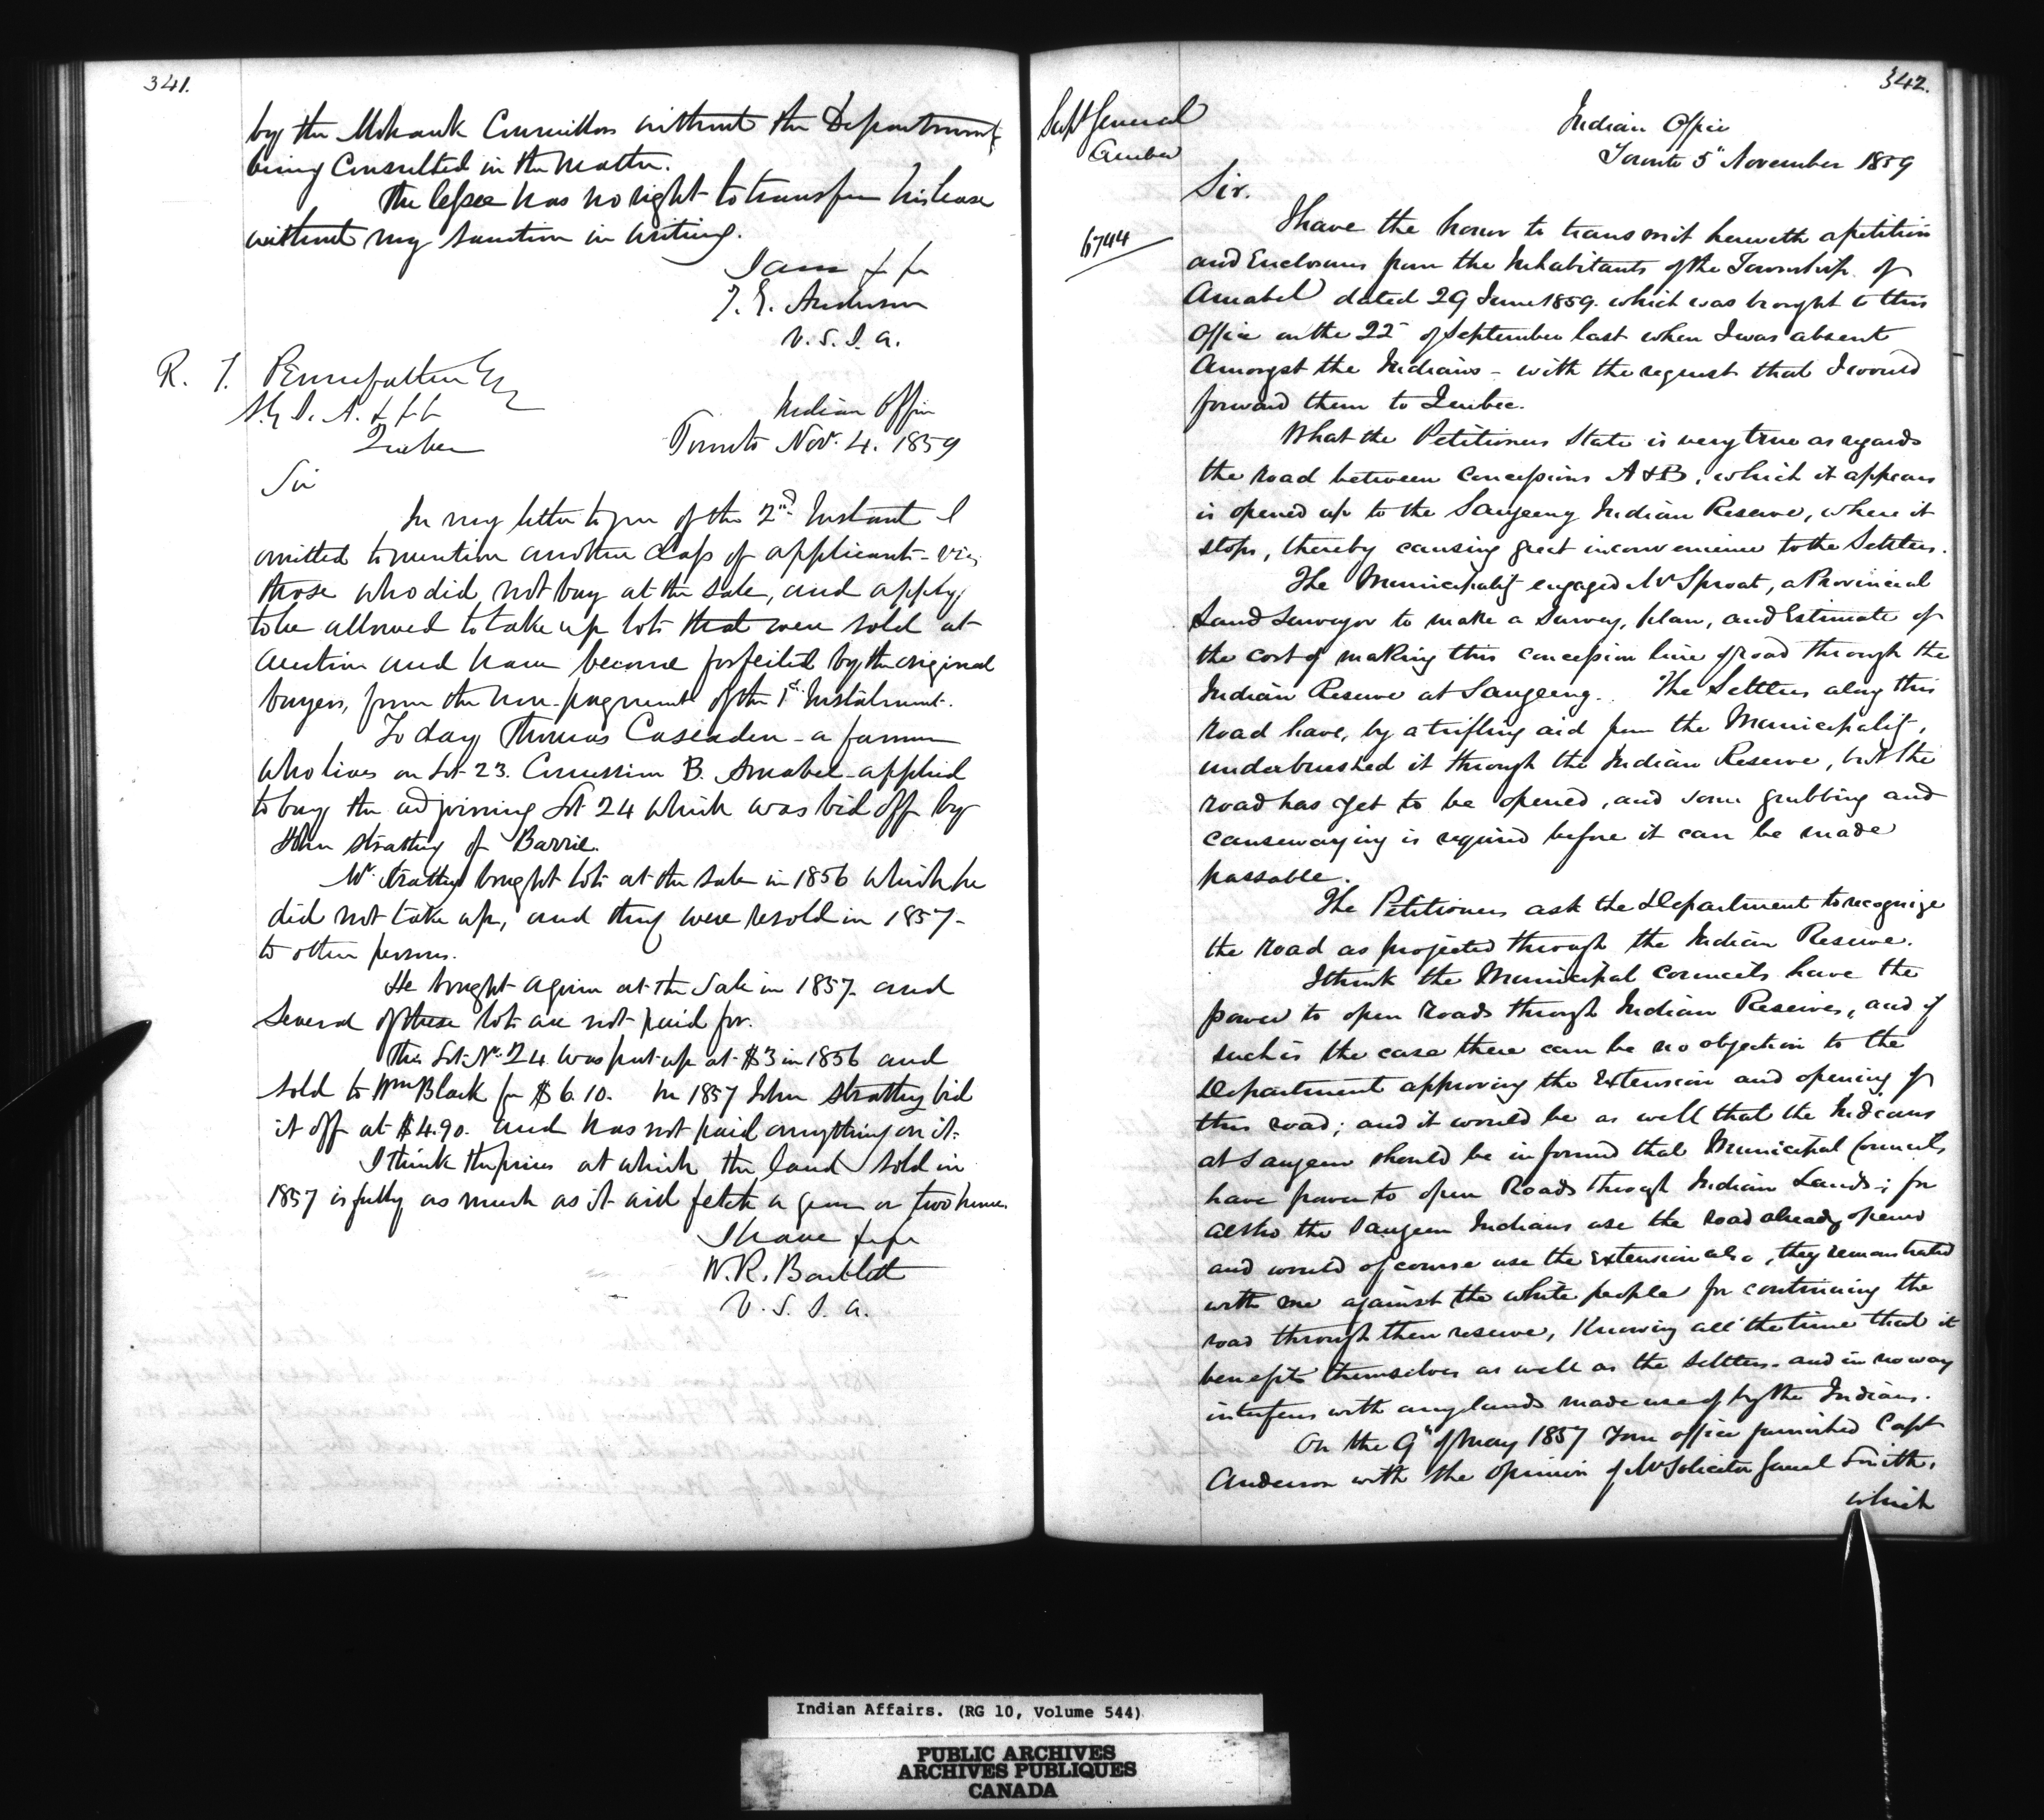 341.
by the Mohawk Councillors without the Department
being Consulted in the matter.
The lessee has no right to transfer his lease
without my sanction in writing.
I am &c &c
T. G. Anderson
V. S. I. A.
R. T. Pennefather Esq
S. G. I. A. &c &c &c
Quebec
Indian Office
Toronto Nov. 4. 1859
Sir
In my letter to you of the 2nd Instant I
omitted to mention another class of applicants - viz,
those who did not buy at the sale, and apply
to be allowed to take up lots that were sold at
auction and have become forfeited by the original
buyers, from the non-payment of the 1st Instalment.
To day Thomas Cascaden - a farmer
who lives on Lot 23. Concession B. Amabel - applied
to buy the adjoining Lot 24 which was bid off by
John Strathy of Barrie.
Mr. Strathy bought lots at the sale in 1856 which he
did not take up, and they were resold in 1857 -
to other persons.
He bought again at the Sale in 1857. and
Several of these lots are not paid for.
This Lot No. 24 was put up at $3 in 1856 and
sold to Wm Black for $6.10. In 1857 John Strathy bid
it off at $4.90. and has not paid anything on it.
I think the prices at which the land sold in
1857 is fully as much as it will fetch a year or two hence.
I have &c &c
W. R. Bartlett
V. S. I. A.
342.
Supt General
Quebec
Indian Office
Toronto 5" November 1859
Sir.
6744
I have the honor to transmit herewith a petition
and Enclosures from the Inhabitants of the Township of
Amabel dated 29 June 1859. which was brought to this
Office on the 22 of September last when I was absent
Amongst the Indians - with the request that I would
forward them to Quebec.
What the Petitioners State is very true as regards
the road between concessions A & B, which it appears
is opened up to the Saugeeng Indian Reserve, where it
stops, thereby causing great inconvenience to the Settlers.
The Municipality engaged Mr Sproat, a Provincial
Land Surveyor to make a Survey, plan, and Estimate of
the cost of making this concession line of road through the
Indian Reserve at Saugeeng. The Settlers along this
road have, by a trifling aid from the Municipality,
underbrushed it through the Indian Reserve, but the
road has yet to be opened, and some grubbing and
causewaying is required before it can be made
passable.
The Petitioners ask the Department to recognize
the road as projected through the Indian Reserve.
I think the Municipal Councils have the
power to open roads through Indian Reserves, and if
such is the case there can be no objection to the
Department approving the Extension and opening of
this road; and it would be as well that the Indians
at Saugeen should be informed that Municipal Councils
have power to open Roads through Indian Lands; for
altho the Saugeen Indians use the road already opened
and would of course use the Extension also, they remonstrated
with me against the white people for continuing the
road through their reserve, Knowing all the time that it
benefits themselves as well as the Settlers - and in no way
interferes with any lands made use of by the Indians.
On the 9" of May 1857 Your office furnished Capt
Anderson with the opinion of Mr Solicitor Genel Smith,
which
Indian Affairs. (RG 10, Volume 544)
PUBLIC ARCHIVES
ARCHIVES PUBLIQUES
CANADA